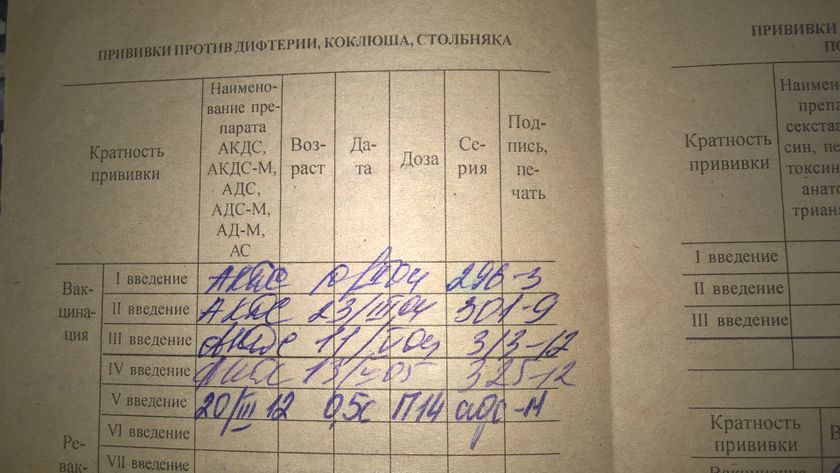 ПРИВИВКИ ПРОТИВ ДИФТЕРИИ, КОКЛЮША, СТОЛБНЯКА
Кратность
прививки
Наимено-
вание пре-
парата
АКДС,
АКДС-М,
АДС,
АДС-М,
АД-М,
АС
Воз-
раст
Да-
та
Доза
Се-
рия
Под-
пись,
пе-
чать
Вак-
цина-
ция
I введение АКДС 10/II 04 296-3
II введение АКДС 23/III 04 301-9
III введение АКДС 11/V 04 313-12
IV введение АКДС 13/ 05 325-12
V введение 20/III 12 0,5 П14 адс-м
VI введение
Ре-
вак-
VII введение
ПРИВИВКИ
ПО
Кратность
прививки
Наимено
препа
секстаа
син, пе
токсин
анато
триан
I введение
II введение
III введение
Кратность
прививки
В